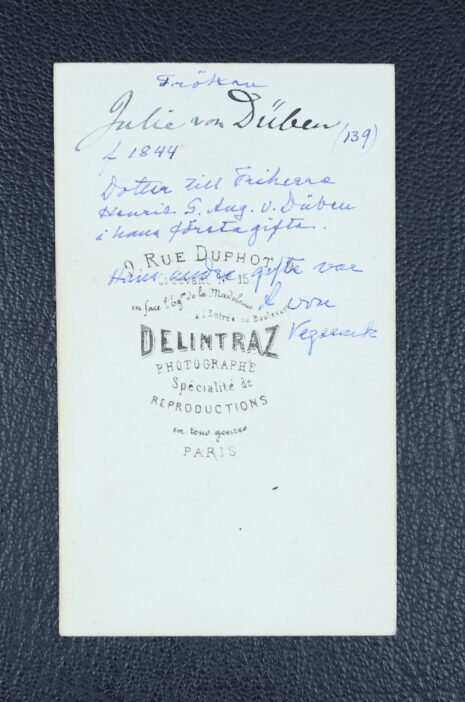 Fröken
Julie von Düben (139)
f 1844
Dotter till Friherre
Henric G. Aug. v. Düben
i hans första gifte.
9 RUE DUPHOT
Hans andra gifte var
15
en face l'Egse de la Madeleine
à l'Entrée du Boulevart
A von
DELINTRAZ
Vegesack
PHOTOGRAPHE
Spécialité de
REPRODUCTIONS
en tous genres
PARIS